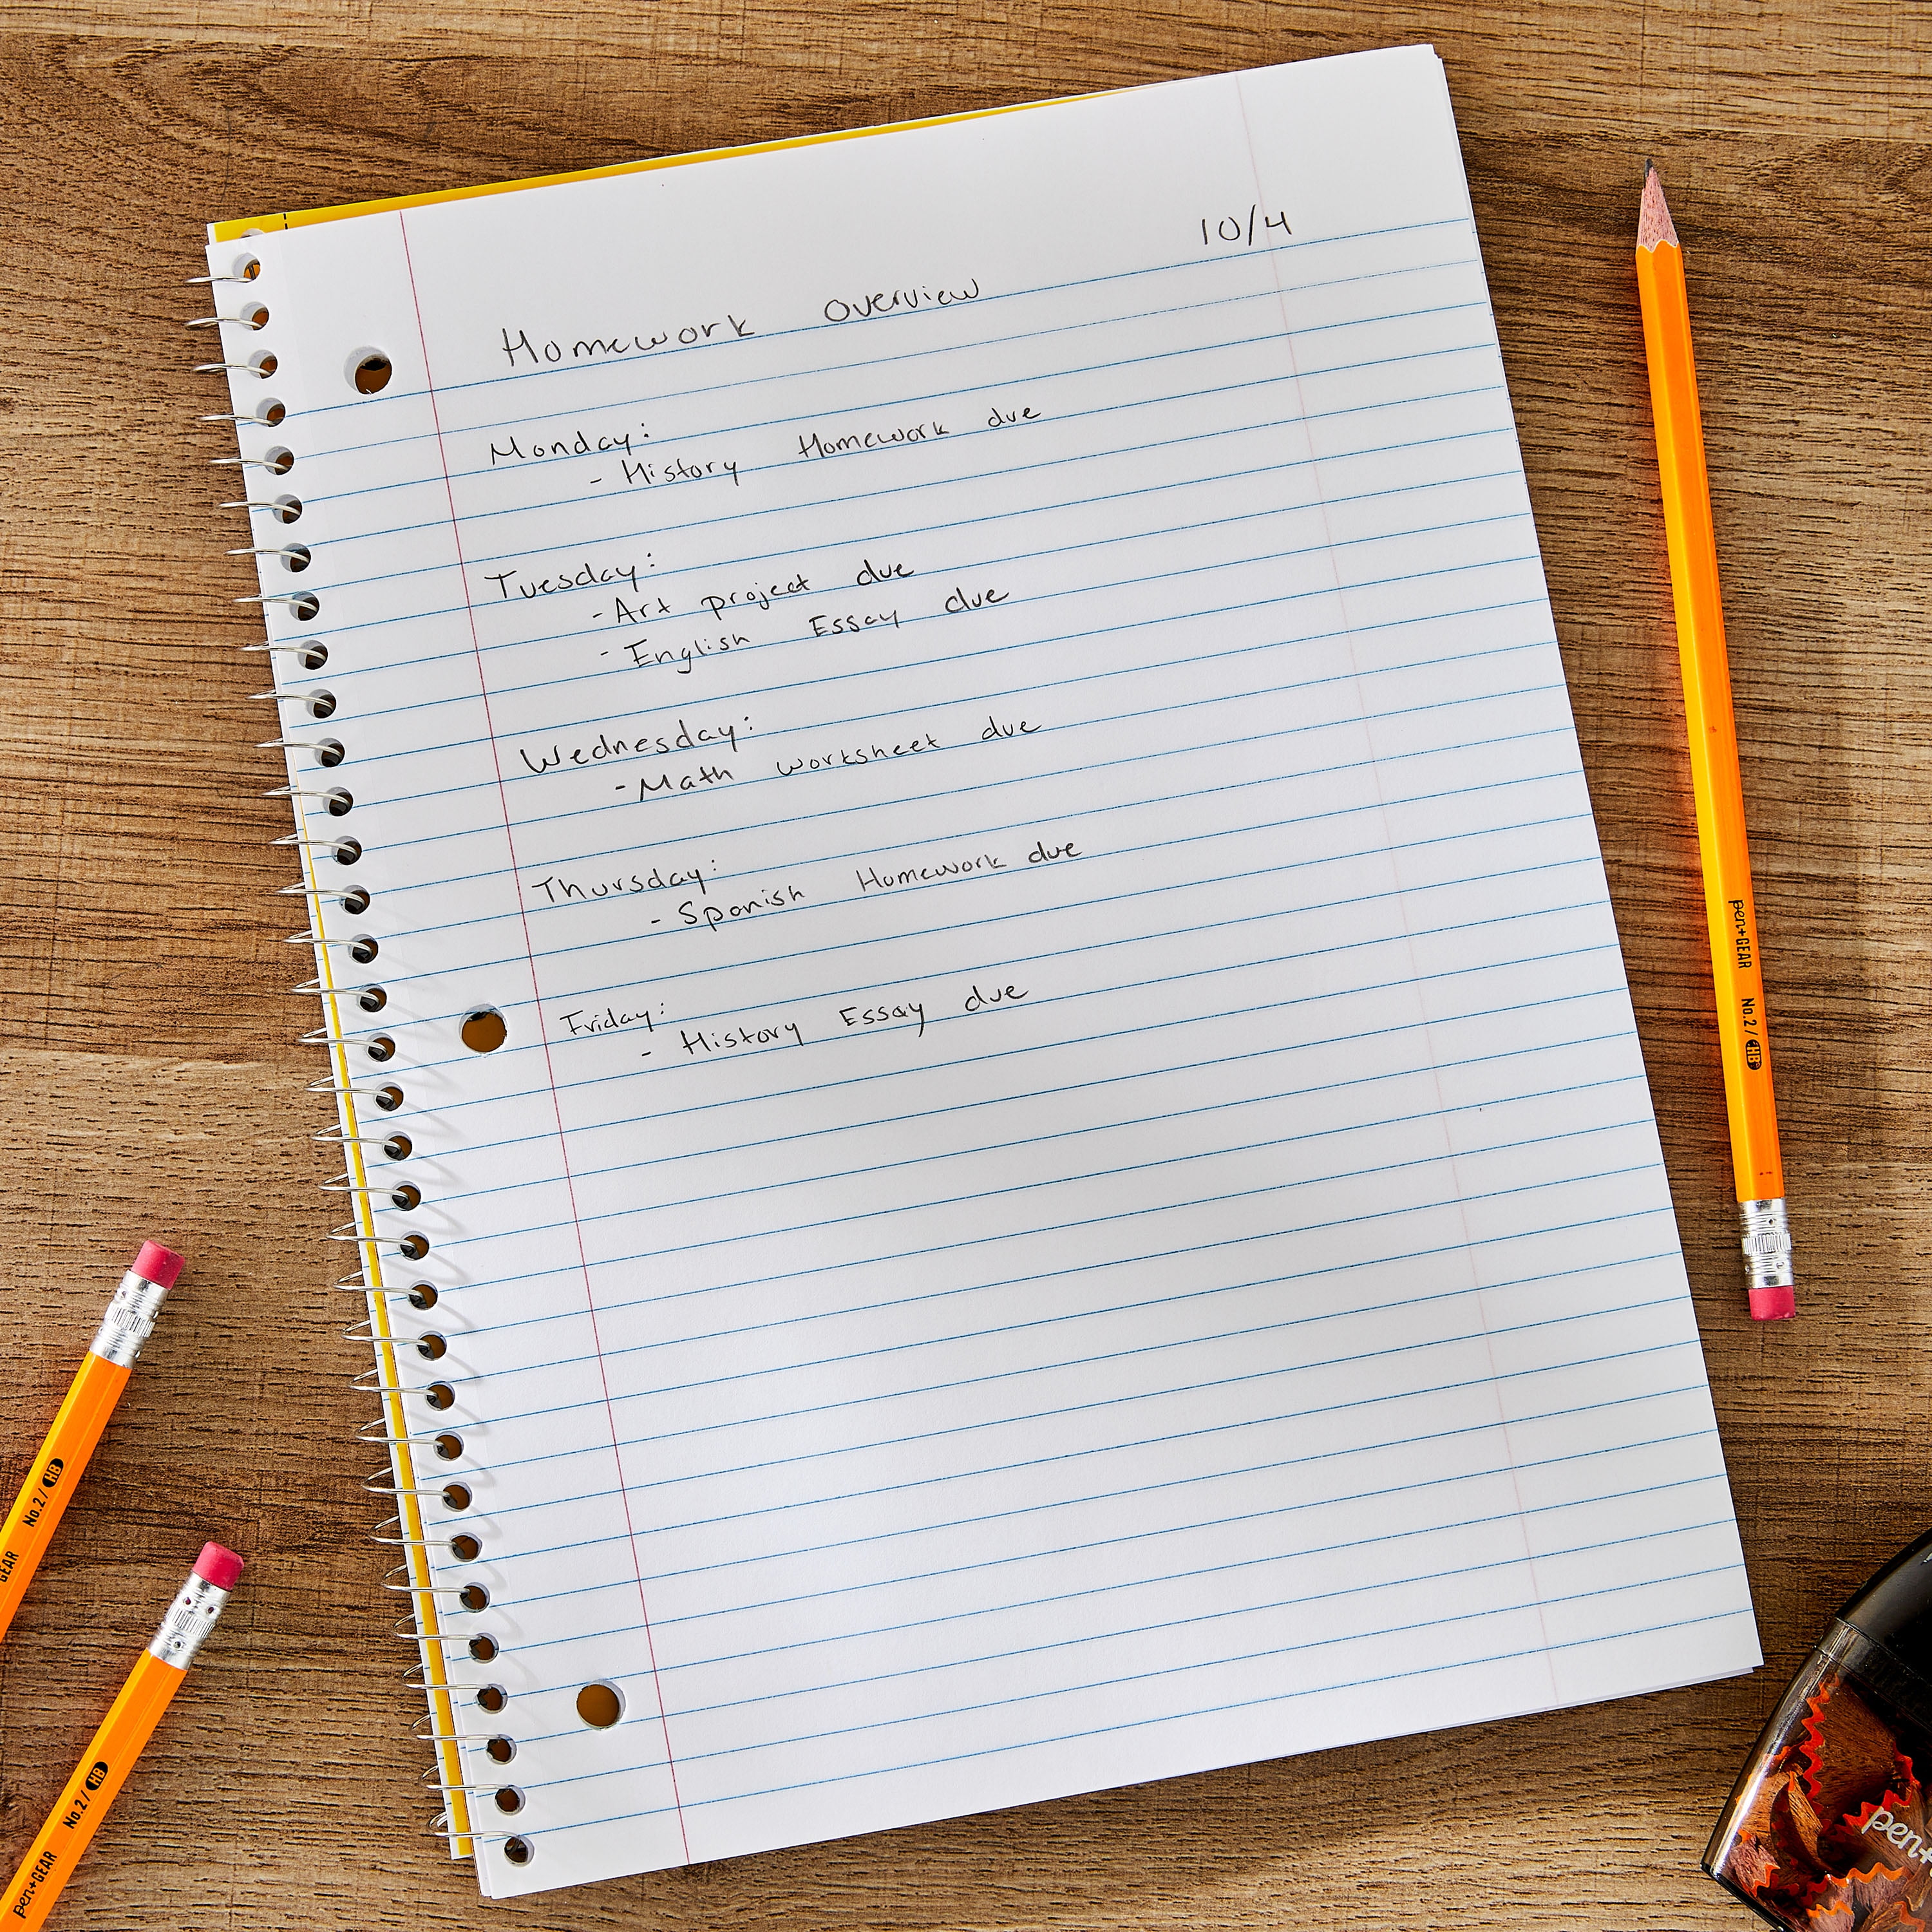 10/4
Homework Overview
Monday:
- History Homework due
Tuesday:
- Art project due
- English Essay due
Wednesday:
- Math worksheet due
Thursday:
- Spanish Homework due
Friday:
- History Essay due
pen+GEAR No.2 / HB
GEAR No.2 / HB
pen+GEAR No.2 / HB
pen+